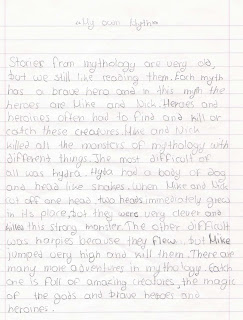 "My own Myth"
Stories from mythology are very old,
but we still like reading them. Each myth
has a brave hero and in this myth the
heroes are Mike and Nick. Heroes and
heroines often had to find and kill or
catch these creatures. Mike and Nick
killed all the monsters of mythology with
different things. The most difficult of
all was hydra. Hydra had a body of dog
and head like snakes. When Mike and Nick
cut off one head two heads immediately grew
in its place, but they were very clever and
killed this strong monster. The other difficult
was harpies because they flew, but Mike
jumped very high and kill them. There are
many more adventures in mythology. Each
one is full of amazing creatures, the magic
of the gods and brave heroes and
heroines.